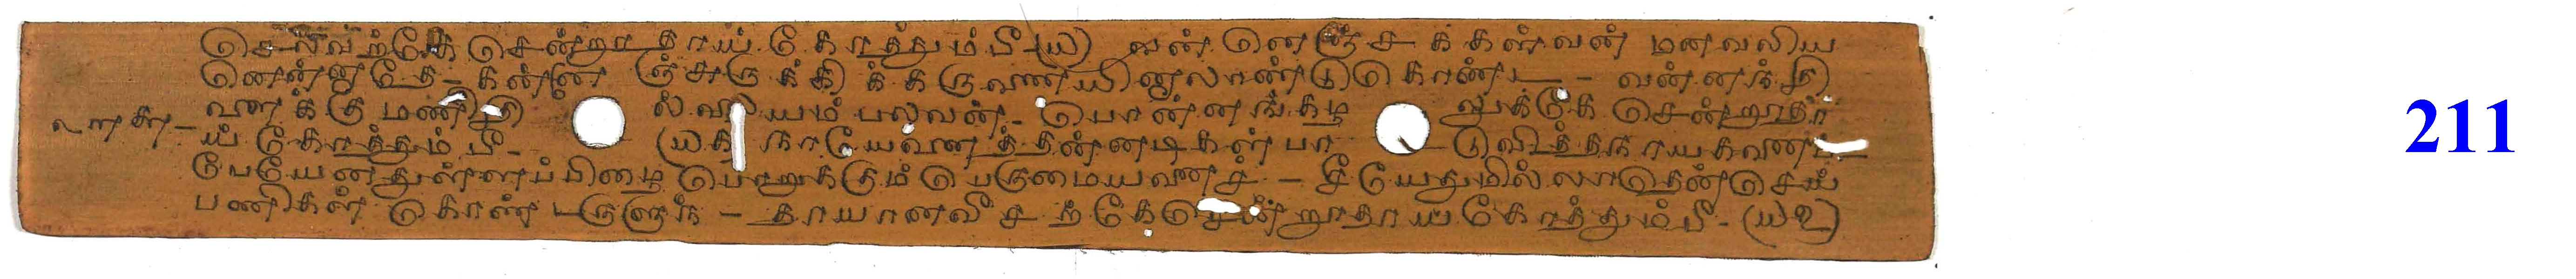 செலவற்கே சென்றூதாய் கோத்தும்பீ (ய) வன் னெஞ்சக் கள்வன் மனவலிய
னென்னாதே - கன்னெஞ்சுருக்கிக் கருணையினாலாண்டுகொண்ட - வன்னந்தி
ளைக்கு மணிதில்லையம்பலவன் - பொன்னங்கழலுக்கே சென்றூதா
ய் கோத்தும்பீ - (யக) நாயேவனைத்தன்னடிகள் பாடுவித்தநாயகனைப்
பேயேனதுள்ளப்பிழை பொறுக்கும் பெருமையனைச் - சீயேதுமில்லாதென்செய்
பணிகள் கொண்டருளுந் - தாயானவீசற்கேசென்றூதாய் கோத்தும்பீ - (யஉ)
211